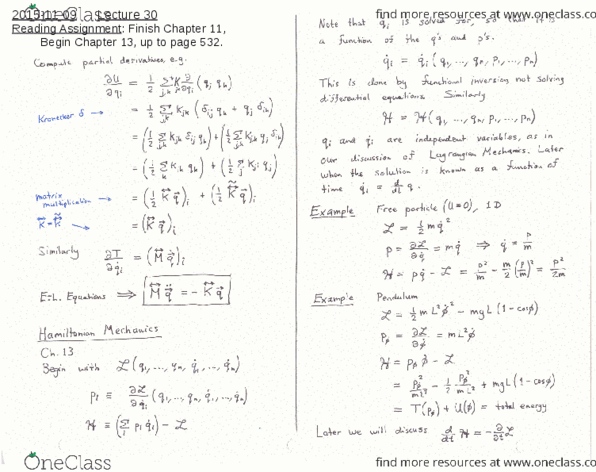 OneClass
find more resources at www.oneclass.com
2015-11-09 Lecture 30
Reading Assignment: Finish Chapter 11,
Begin Chapter 13, up to page 532.
Compute partial derivatives, e.g.
∂U/∂qᵢ = 1/2 Σⱼₖ Kⱼₖ ∂/∂qᵢ (qⱼ qₖ)
Kronecker δ → = 1/2 Σⱼₖ Kⱼₖ (δᵢⱼ qₖ + qⱼ δᵢₖ)
= (1/2 Σⱼₖ Kⱼₖ δᵢⱼ qₖ) + (1/2 Σⱼₖ Kⱼₖ qⱼ δᵢₖ)
= (1/2 Σₖ Kᵢₖ qₖ) + (1/2 Σⱼ Kⱼᵢ qⱼ)
matrix
multiplication → = (1/2 K⃡ q⃗)ᵢ + (1/2 K̃⃡ q⃗)ᵢ
K⃡ = K̃⃡ → = (K⃡ q⃗)ᵢ
Similarly ∂T/∂q̇ᵢ = (M⃡ q̇⃗)ᵢ
E.-L. Equations ⟹ M⃡ q̈⃗ = - K⃡ q⃗
Hamiltonian Mechanics
Ch. 13
Begin with ℒ(q₁, ..., qₙ, q̇₁, ..., q̇ₙ)
pᵢ ≡ ∂ℒ/∂q̇ᵢ (q₁, ..., qₙ, q̇₁, ..., q̇ₙ)
ℋ ≡ (Σᵢ pᵢ q̇ᵢ) - ℒ
Note that q̇ᵢ is solved for, so that it is
a function of the q's and p's.
q̇ᵢ = q̇ᵢ (q₁, ..., qₙ, p₁, ..., pₙ)
This is done by functional inversion not solving
differential equations. Similarly
ℋ = ℋ(q₁, ..., qₙ, p₁, ..., pₙ)
qᵢ and q̇ᵢ are independent variables, as in
our discussion of Lagrangian Mechanics. Later
when the solution is known as a function of
time q̇ᵢ = d/dt q.
Example Free particle (U=0), 1D
ℒ = 1/2 m q̇²
p = ∂ℒ/∂q̇ = m q̇ ⟹ q̇ = p/m
ℋ = p q̇ - ℒ = p²/m - m/2 (p/m)² = p²/2m
Example Pendulum
ℒ = 1/2 m L² φ̇² - mgL (1 - cosφ)
p_φ = ∂ℒ/∂φ̇ = m L² φ̇
ℋ = p_φ φ̇ - ℒ
= p_φ²/mL² - 1/2 p_φ²/mL² + mgL (1 - cosφ)
= T(p_φ) + U(φ) = total energy
Later we will discuss d/dt ℋ = - ∂/∂t ℒ
OneClass
find more resources at www.oneclass.com